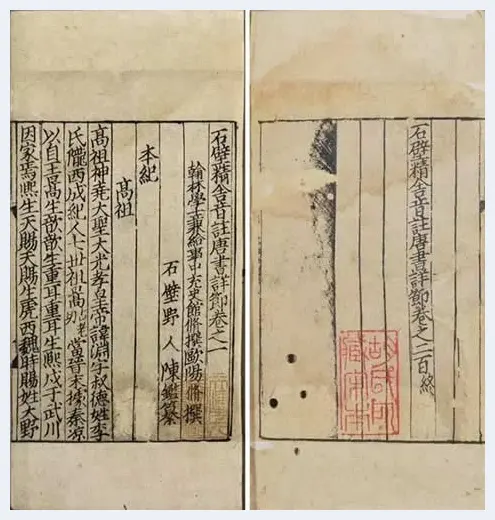 石壁精舍音註唐書詳節卷之一
翰林學士兼給事中充史館脩撰歐陽脩撰
石壁野人陳鑑纂
本紀
高祖
高祖神堯大聖大光孝皇帝諱淵字叔德姓李
氏隴西成紀人七世祖暠當晉末據秦涼
以自王暠生歆歆生重耳重耳生熙戍于武川
因家焉熙生天賜天賜生虎西魏時賜姓大野
石壁精舍音註唐書詳節卷之一百終